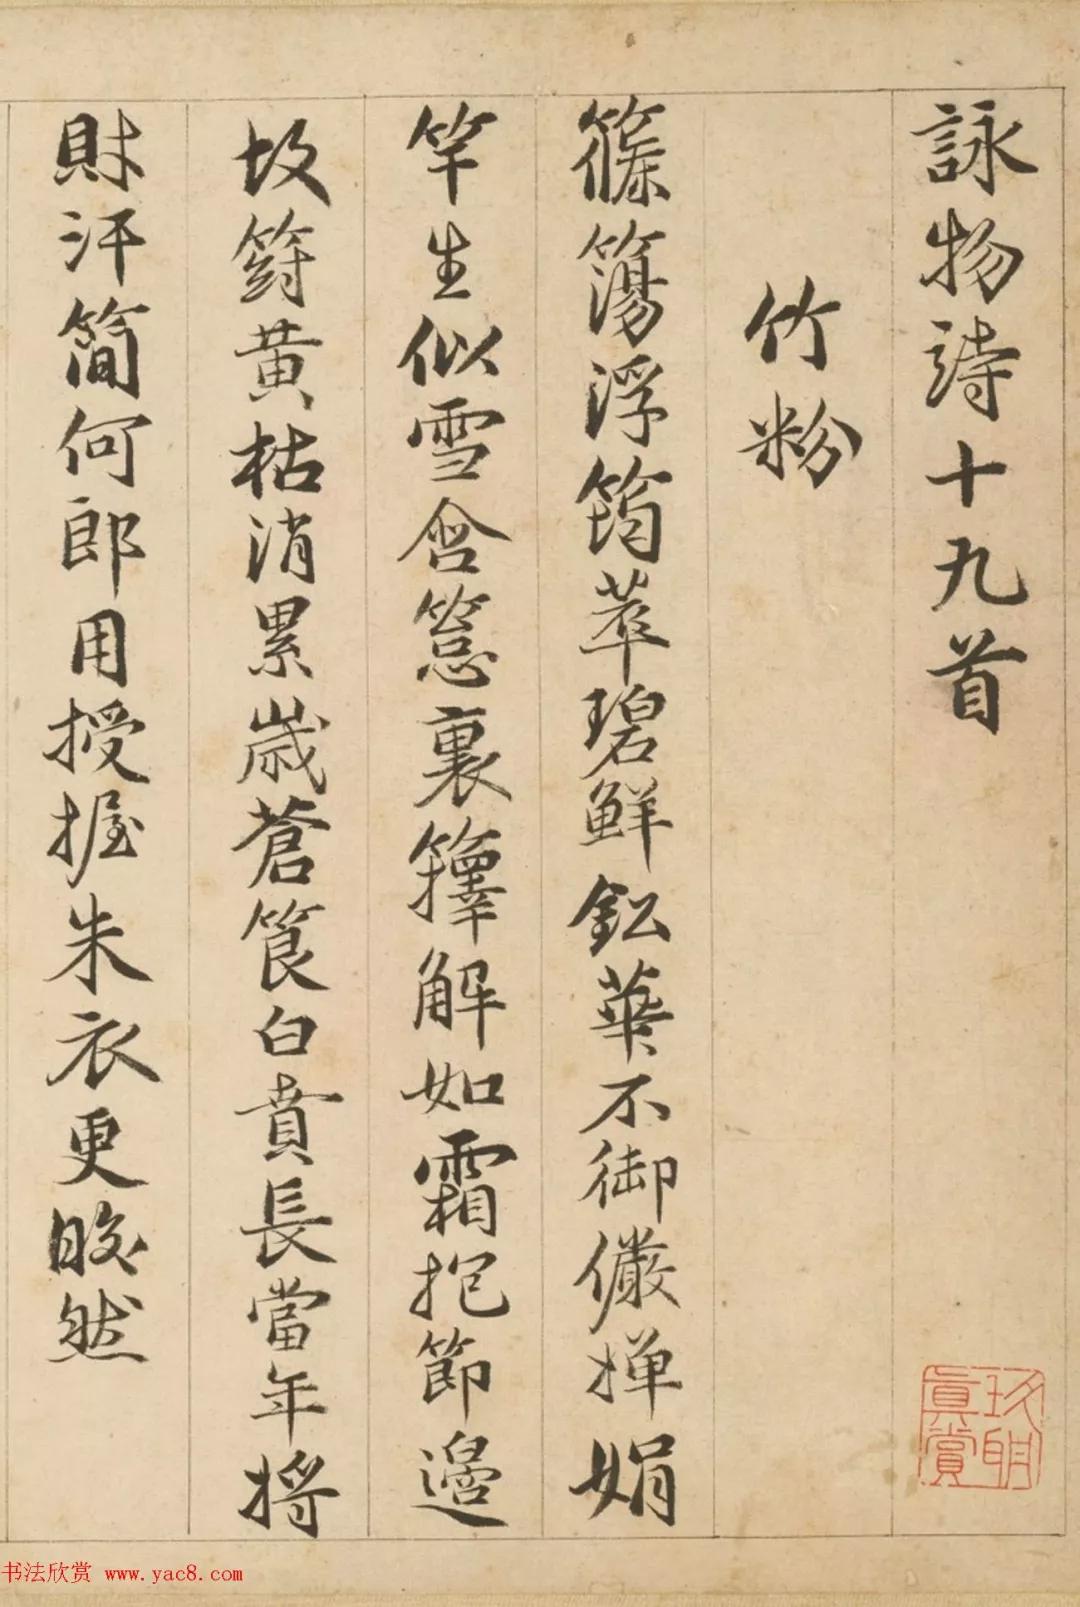 詠物詩十九首
竹粉
篠簜浮筠萃碧鮮鈆華不御儼嬋娟
竿生似雪含篜裏籜解如霜抱節邊
坟篈黄枯消累嵗蒼筤白賁長當年將
財汗簡何郎用授握朱衣更晈然
真賞
书法欣赏 www.yac8.com